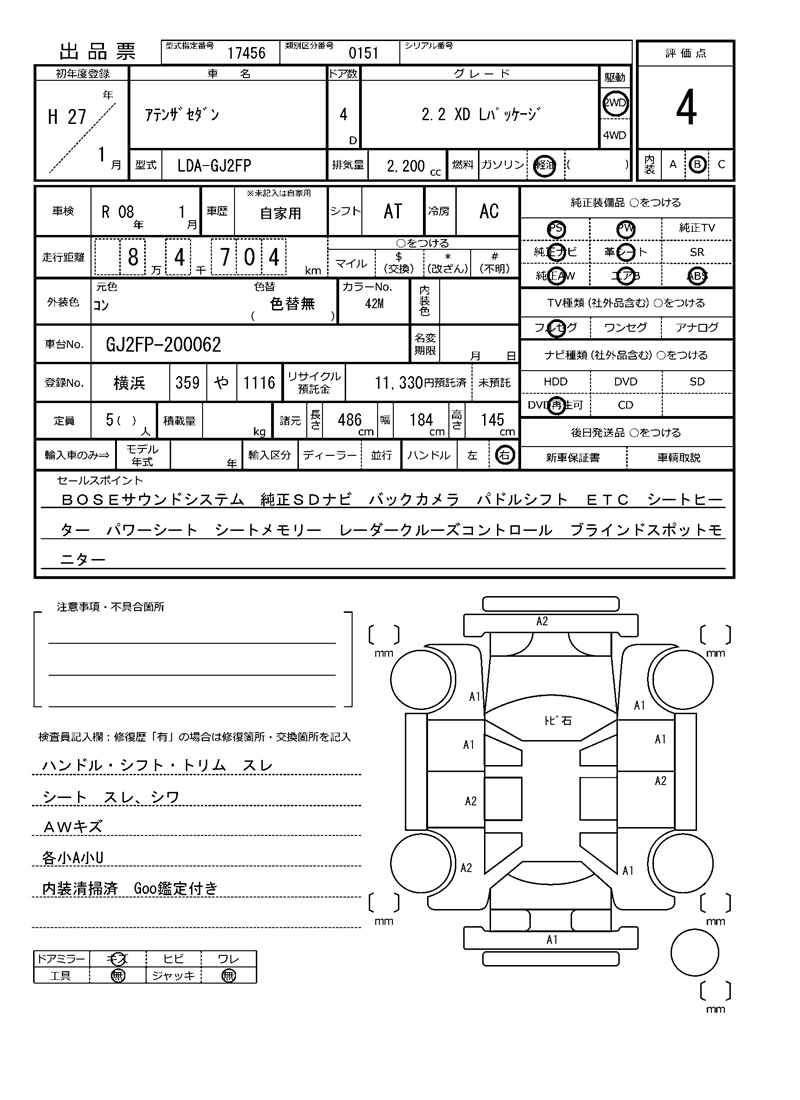 出品票 型式指定番号 17456 類別区分番号 0151 シリアル番号
評価点
4
内装 A B C
初年度登録 車名 ドア数 グレード 駆動
H 27 年 1 月 ｱﾃﾝｻﾞｾﾀﾞﾝ 4 D 2.2 XD Lﾊﾟｯｹｰｼﾞ 2WD 4WD
型式 LDA-GJ2FP 排気量 2,200 cc 燃料 ガソリン 軽油 ( )
車検 R 08 年 1 月 車歴 ※未記入は自家用 自家用 シフト AT 冷房 AC
走行距離 8 万 4 千 7 0 4 km ○をつける
マイル $(交換) *(改ざん) #(不明)
外装色 元色 ｺﾝ 色替 ( 色替無 ) カラーNo. 42M 内装色
車台No. GJ2FP-200062 名変期限 月 日
登録No. 横浜 359 や 1116 リサイクル預託金 11,330円預託済 未預託
定員 5( ) 人 積載量 kg 諸元 長さ 486 cm 幅 184 cm 高さ 145 cm
輸入車のみ⇒ モデル年式 年 輸入区分 ディーラー 並行 ハンドル 左 右
純正装備品 ○をつける
PS PW 純正TV
純正ナビ 革シート SR
純正AW エアB ABS
TV種類(社外品含む)○をつける
フルセグ ワンセグ アナログ
ナビ種類(社外品含む)○をつける
HDD DVD SD
DVD再生可 CD
後日発送品 ○をつける
新車保証書 車輌取説
セールスポイント
ＢＯＳＥサウンドシステム 純正ＳＤナビ バックカメラ パドルシフト ＥＴＣ シートヒー
ター パワーシート シートメモリー レーダークルーズコントロール ブラインドスポットモ
ニター
注意事項・不具合箇所
検査員記入欄：修復歴「有」の場合は修復箇所・交換箇所を記入
ハンドル・シフト・トリム スレ
シート スレ、シワ
ＡＷキズ
各小A小U
内装清掃済 Goo鑑定付き
ドアミラー キズ ヒビ ワレ
工具 無 ジャッキ 無
A2
mm mm
A1 A1
ﾄﾋﾞ石
A1 A1
A2 A2
A2 A1
mm mm
A1
mm